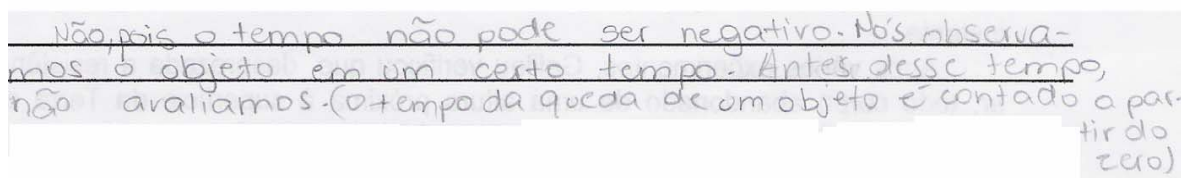 Não, pois o tempo não pode ser negativo. Nós observa-
mos o objeto em um certo tempo. Antes desse tempo,
não avaliamos. (O tempo da queda de um objeto é contado a par-
tir do
zero)